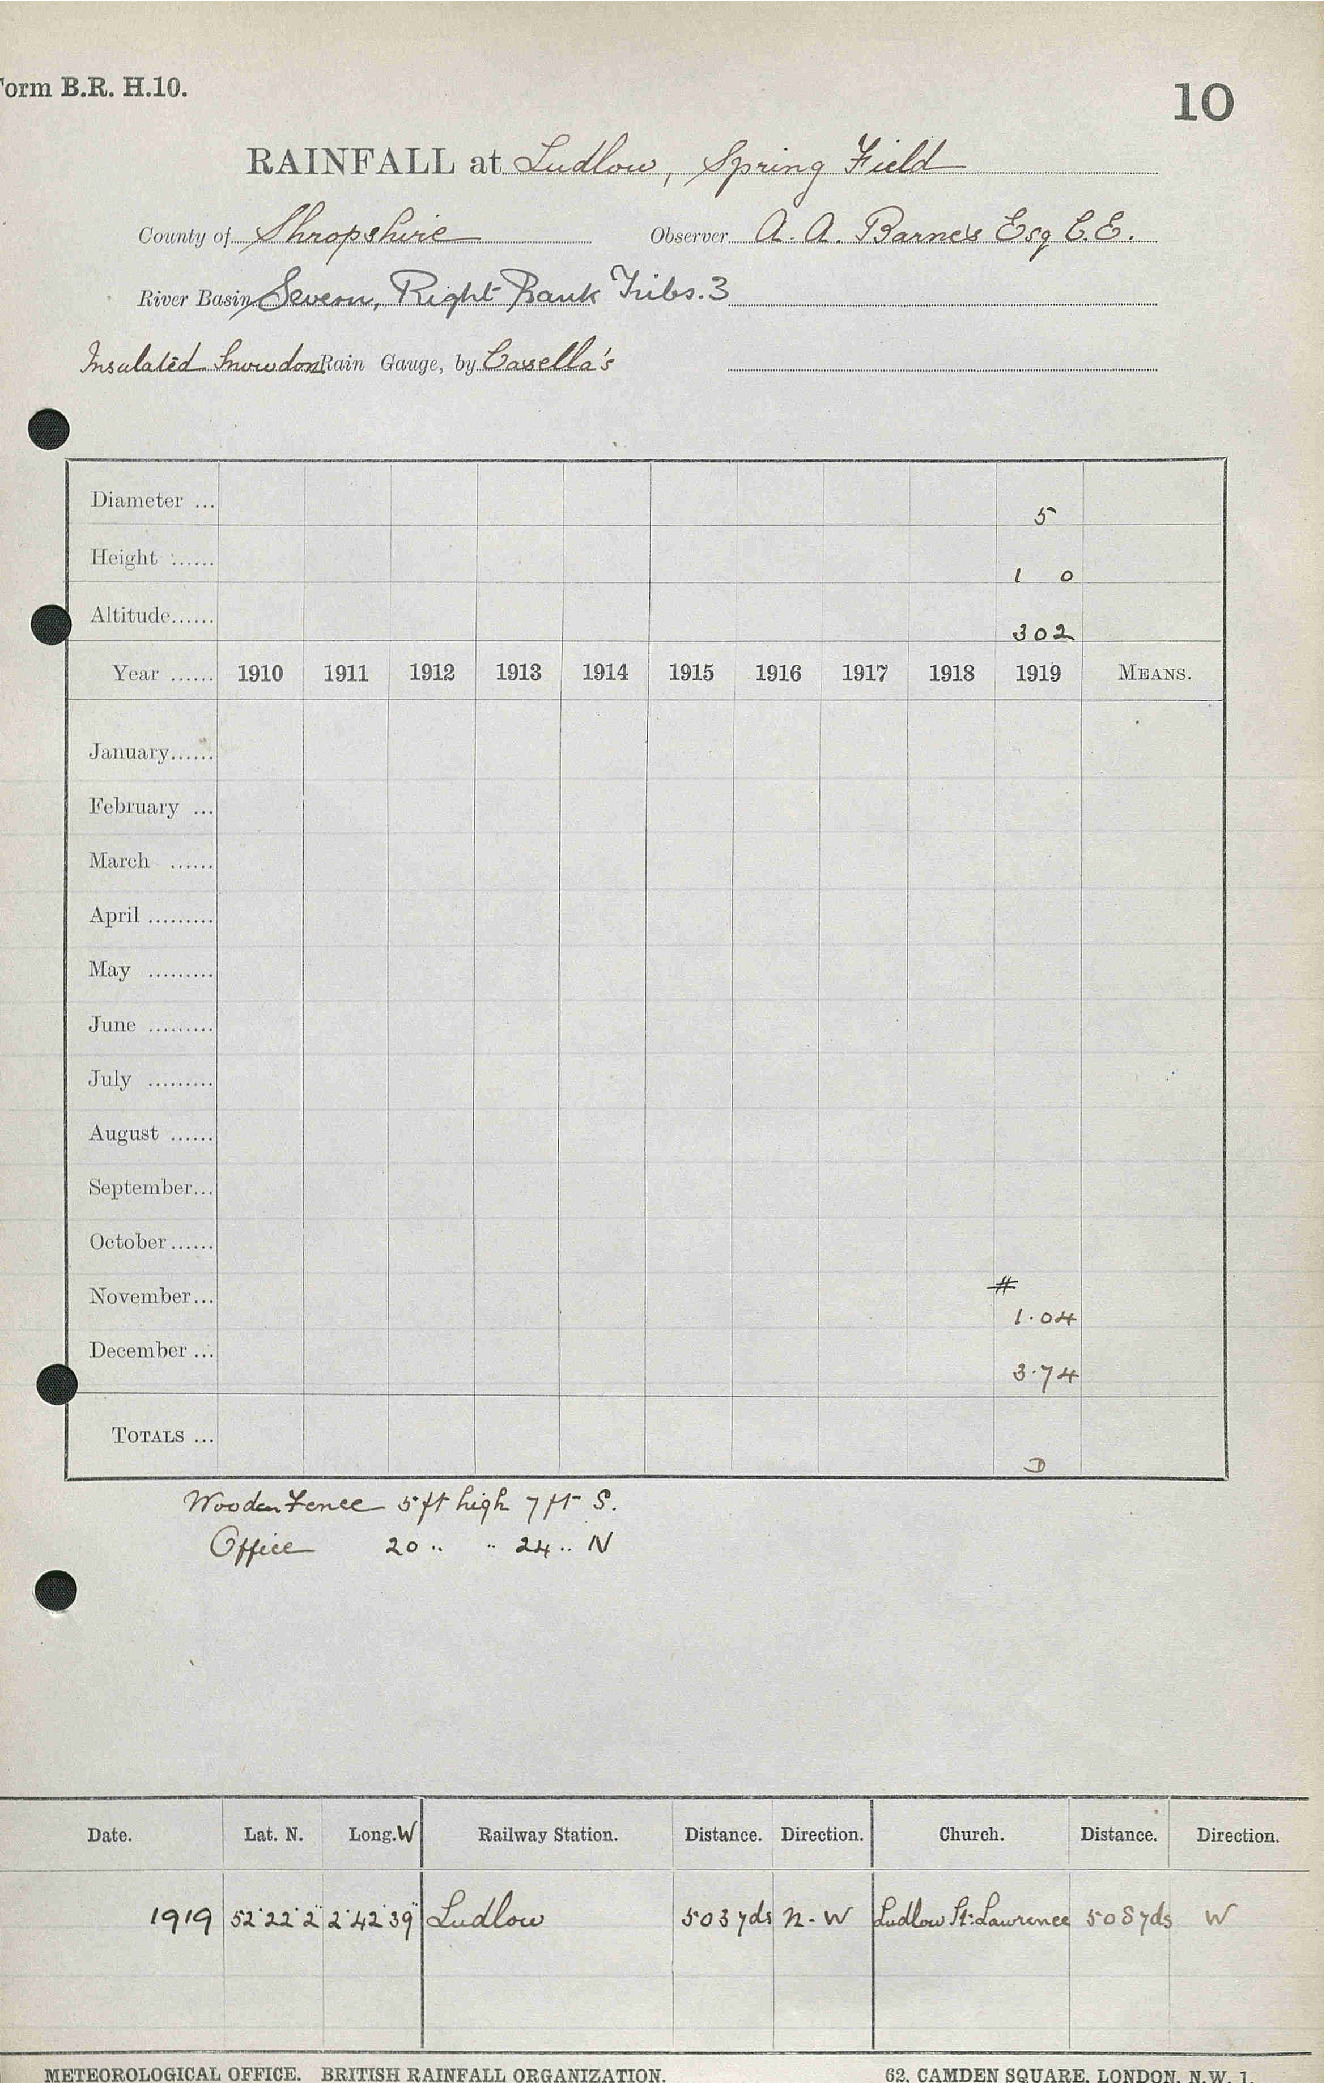 Form B.R. H.10.
10
RAINFALL at Ludlow, Spring Field
County of Shropshire Observer A. A. Barnes Esq C.E.
River Basin Severn, Right Bank Tribs. 3
Insulated Snowdon Rain Gauge, by Casella's
Diameter ... 5
Height ...... 1 0
Altitude...... 302
Year ...... 1910 1911 1912 1913 1914 1915 1916 1917 1918 1919 MEANS.
January......
February ...
March ......
April .........
May .........
June .........
July .........
August ......
September...
October......
November... # 1.04
December ... 3.74
TOTALS ... D
Wooden Fence 5 ft high 7 ft S.
Office 20 " " 24 " N
Date. Lat. N. Long. W Railway Station. Distance. Direction. Church. Distance. Direction.
1919 52°22'2" 2°42'39" Ludlow 503 yds N-W Ludlow St. Lawrence 508 yds W
METEOROLOGICAL OFFICE. BRITISH RAINFALL ORGANIZATION. 62, CAMDEN SQUARE, LONDON, N.W. 1.